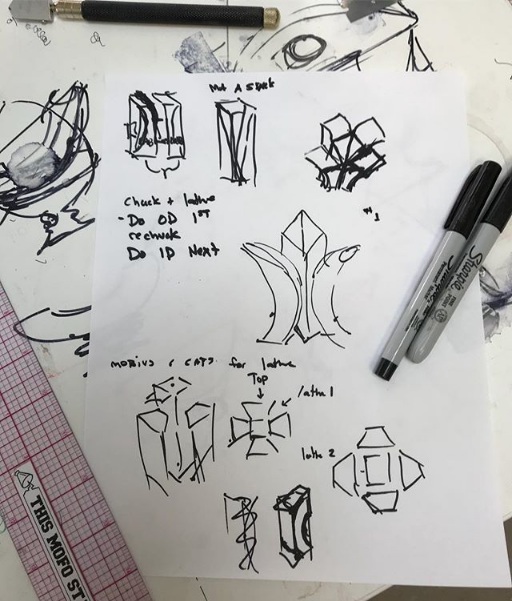 Not A
chuck + lathe
- Do OD 1ST
rechuck
Do ID Next
#1
MOBIUS CATS for lathe
TOP
lathe 1
lathe 2
Sharpie
Sharpie
THIS MOFO ST